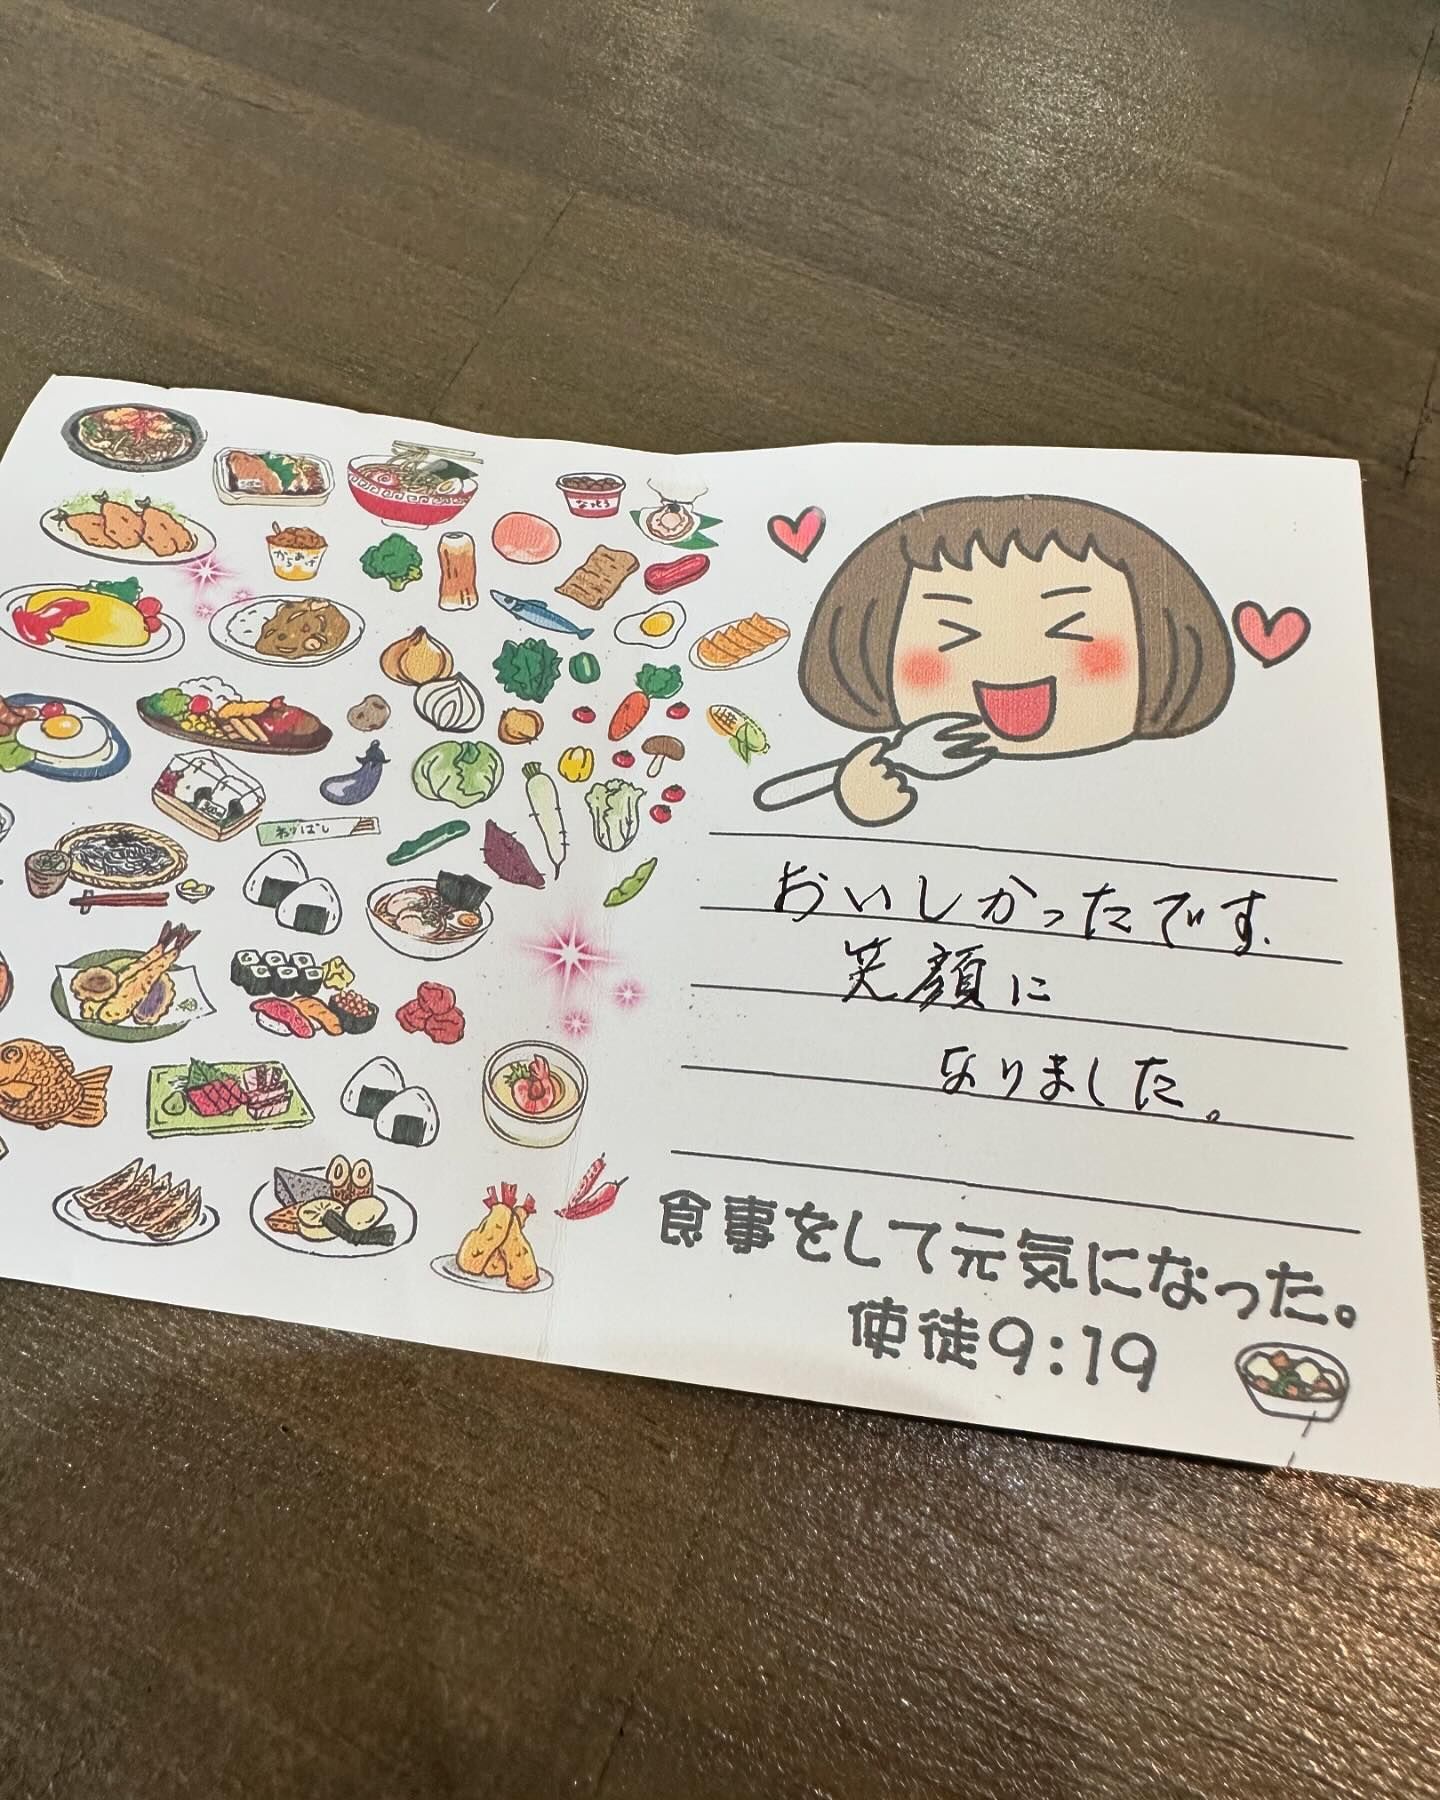 なっとう
からあげ
わりばし
おいしかったです.
笑顔に
なりました。
食事をして元気になった。
使徒9:19